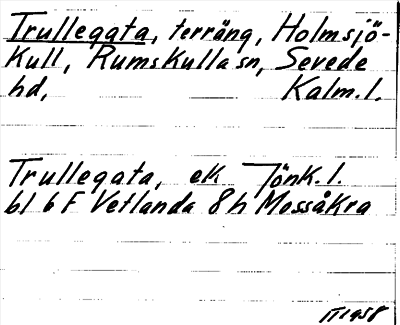 Trullegata, terräng, Holmsjö-
kull, Rumskulla sn, Sevede
hd, Kalm. l.
Trullegata, ek Jönk. l.
bl 6 F Vetlanda 8 h Mossåkra
1958